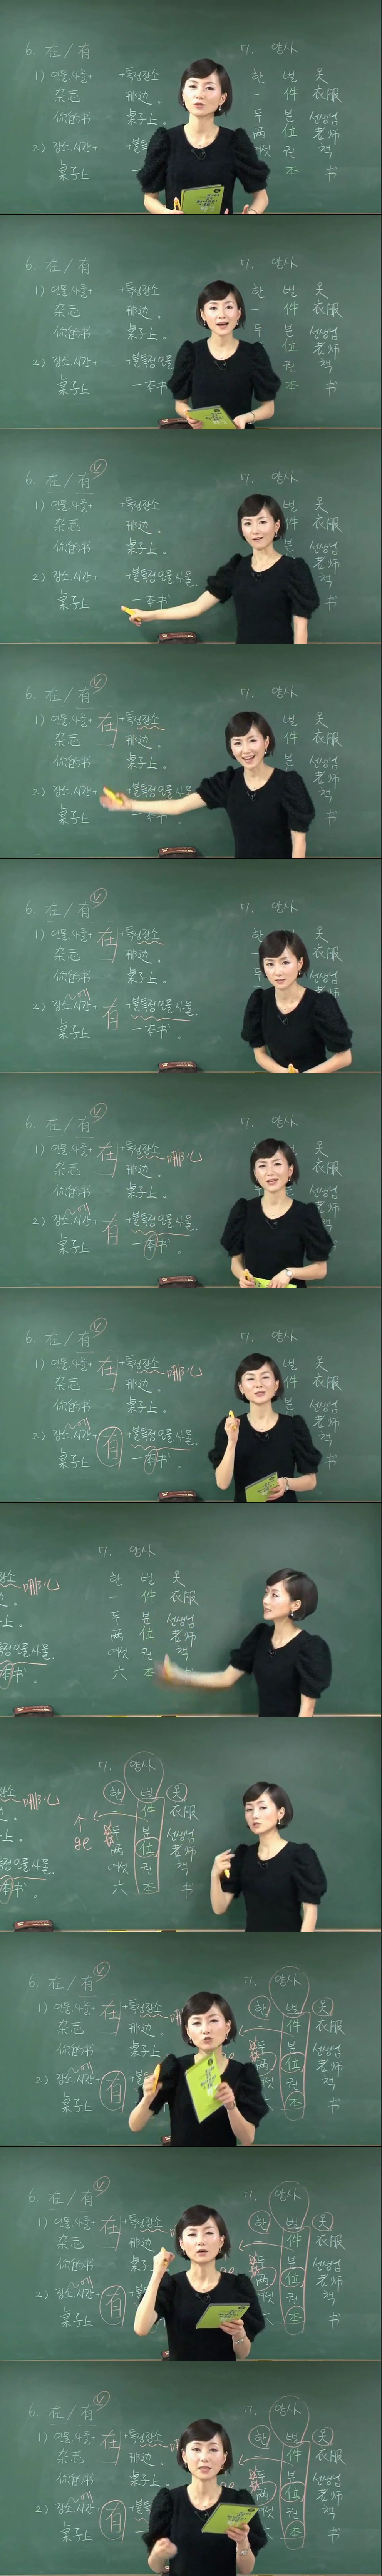 6. 在 / 有
1) 인물 사물+ +특정장소
杂志 那边。
你的书 桌子上。
2) 장소.시간+ +불
桌子上 一
7. 양사
한 벌 옷
一 件 衣服
두 분 선생님
两 位 老师
여섯 권 책
本 书
6. 在 / 有
1) 인물 사물+ +특정장소
杂志 那边。
你的书 桌子上。
2) 장소.시간+ +불특정인물
桌子上 一本书
7. 양사
한 벌 옷
一 件 衣服
두 분 선생님
位 老师
권 책
本 书
6. 在 / 有 ✓
1) 인물 사물+ +특정장소
杂志 那边。
你的书 桌子上。
2) 장소.시간+ +불특정인물 사물.
桌子上 一本书
7. 양사
벌 옷
件 衣服
분 선생님
老师
책
书
6. 在 / 有 ✓
1) 인물 사물+ 在 +특정장소
杂志 那边。
你的书 桌子上。
2) 장소.시간+ +불특정인물 사물
桌子上 一本书
7. 양사
벌 옷
件 衣服
분 선생님
老师
책
书
6. 在 / 有 ✓
1) 인물 사물+ 在 +특정장소
杂志 那边。
你的书 桌子上。
2) 장소.시간+에 有 +불특정인물 사물.
桌子上 一本书。
7. 양사
한 옷
一 衣服
두 선생님
老师
책
书
6. 在 / 有 ✓
1) 인물 사물+ 在 +특정장소 哪儿
杂志 那边。
你的书 桌子上。
2) 장소.시간+에 有 +불특정인물 사물.
桌子上 一本书。
7. 양사
벌 옷
件 衣服
선생님
老师
책
书
6. 在 / 有 ✓
1) 인물 사물+ 在 +특정장소 哪儿
杂志 那边。
你的书 桌子上。
2) 장소.시간+에 有 +불특정인물 사물.
桌子上 一本书。
7. 양사
벌 옷
件 衣服
분 선생님
老师
책
书
장소 哪儿
上。
특정인물 사물.
本书。
7. 양사
한 벌 옷
一 件 衣服
두 분 선생님
两 位 老师
여섯 권 책
六 本 书
장소 哪儿
上。
특정인물 사물.
本书。
个
ge
7. 양사
한 벌 옷
件 衣服
두 분 선생님
两 位 老师
여섯 권 책
六 本 书
6. 在 / 有 ✓
1) 인물 사물+ 在 +특정장소
杂志 那边。
你的书 桌子上
2) 장소.시간+에 有 +불
桌子上 一
7. 양사
한 벌 옷
件 衣服
두 분 선생님
两 位 老师
여섯 권 책
本 书
6. 在 / 有 ✓
1) 인물 사물+ 在 +특정장소
杂志 那边
你的书 桌子
2) 장소.시간+에 有 +불
桌子上 一
7. 양사
한 벌 옷
件 衣服
두 분 선생님
两 位 老师
권 책
本 书
6. 在 / 有 ✓
1) 인물 사물+ 在 +특정장소
杂志 那边。
你的书 桌子上
2) 장소.시간+에 有 +불
桌子上 一
7. 양사
한 벌 옷
件 衣服
두 분 선생님
两 位 老师
권 책
本 书